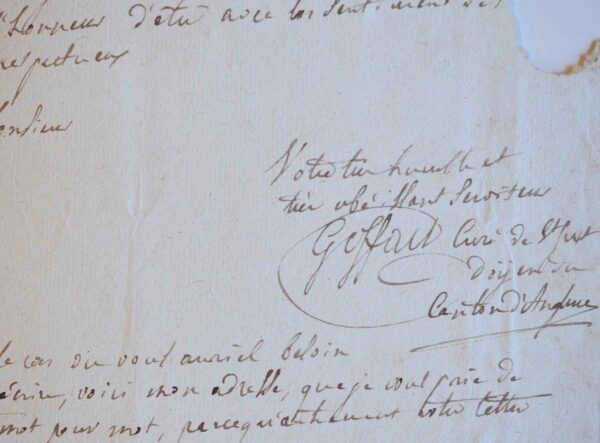 l'honneur d'etre avec les sentimens les
respectueux
Monsieur
Votre tres humble et
tres obeissant serviteur
Curé de St just
Doyen du
Canton d'
le cas ou vous auriez besoin
écrire, voici mon adresse, que je vous prie de
mot pour mot, parcequ'autrement votre lettre